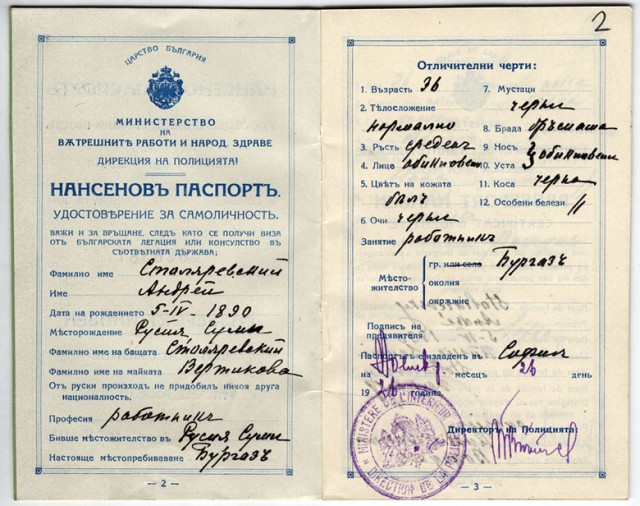 ЦАРСТВО БЪЛГАРИЯ
МИНИСТЕРСТВО
НА
ВѪТРЕШНИТѢ РАБОТИ И НАРОД. ЗДРАВЕ
ДИРЕКЦИЯ НА ПОЛИЦИЯТА!
НАНСЕНОВЪ ПАСПОРТЪ.
УДОСТОВѢРЕНИЕ ЗА САМОЛИЧНОСТЬ.
ВАЖИ И ЗА ВРЪЩАНЕ, СЛЕДЪ КАТО СЕ ПОЛУЧИ ВИЗА
ОТЪ БЪЛГАРСКАТА ЛЕГАЦИЯ ИЛИ КОНСУЛСТВО ВЪ
СЪОТВѢТНАТА ДЪРЖАВА;
Фамилно име Сталяревский
Име Андрей
Дата на рождението 5-IV-1890
Мѣсторождение Русия Сумы
Фамилно име на бащата Столяревский
Фамилно име на майката Вертикова
От руски произход не придобил никоя друга
националность.
Професия работникъ
Бивше мѣстожителство въ Русия Суми
Настояще мѣстопребиваване Бургазъ
— 2 —
2
Отличителни черти:
1. Възрасть 36
2. Тѣлосложение
нормално
3. Ръстъ среденъ
4. Лице обикновен
5. Цвѣтъ на кожата
бялъ
6. Очи черни
7. Мустаци
черни
8. Брада бръсната
9. Носъ
10. Уста обикновени
11. Коса черна
12. Особени белези //
Занятие работникъ
Мѣсто-
жителство
гр. или село Бургазъ
околия
окрѫжие
Подпись на
предявителя
Паспортъ издаденъ въ София
на Ноемврий месецъ 26 день
1926 година.
Директоръ на Полицията:
MINISTERE DE L'INTERIEUR
DIRECTION DE LA POLICE
— 3 —